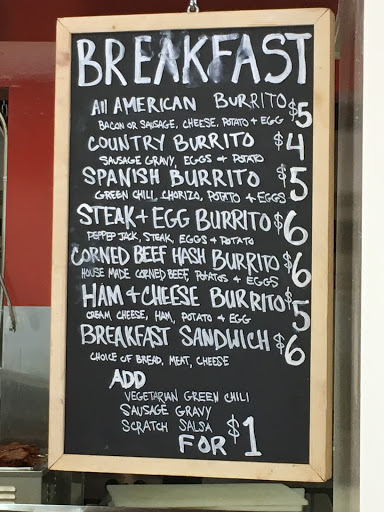 BREAKFAST
All AMERICAN BURRITO $5
BACON OR SAUSAGE, CHEESE, POTATO + EGG
COUNTRY BURRITO $4
SAUSAGE GRAVY, EGGS + POTATO
SPANISH BURRITO $5
GREEN CHILI, CHORIZO, POTATO + EGGS
STEAK + EGG BURRITO $6
PEPPER JACK, STEAK, EGGS + POTATO
CORNED BEEF HASH BURRITO $6
HOUSE MADE CORNED BEEF, POTATOS + EGGS
HAM + CHEESE BURRITO $5
CREAM CHEESE, HAM, POTATO + EGG
BREAKFAST SANDWICH $6
CHOICE OF BREAD, MEAT, CHEESE
ADD
VEGETARIAN GREEN CHILI
SAUSAGE GRAVY
SCRATCH SALSA
FOR $1